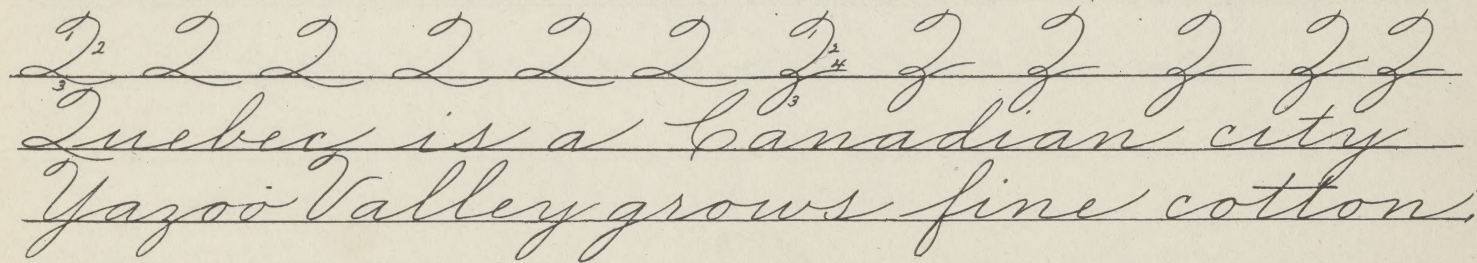 Q Q Q Q Q Q Z Z Z Z Z Z
Quebec is a Canadian city
Yazoo Valley grows fine cotton.